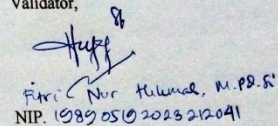 Validator,
Fitri Nur Hikmal, M.Pd.Si
NIP. 198905192023212041